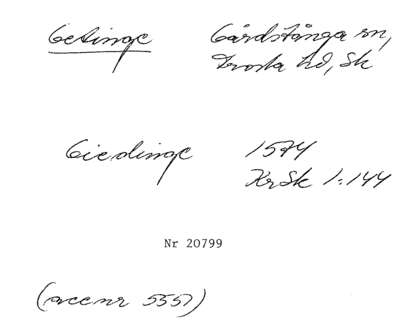 Getinge Gårdstånga sn,
Frosta hd, Sk
Giedinge 1574
KrSk 1:144
Nr 20799
(accnr 5557)